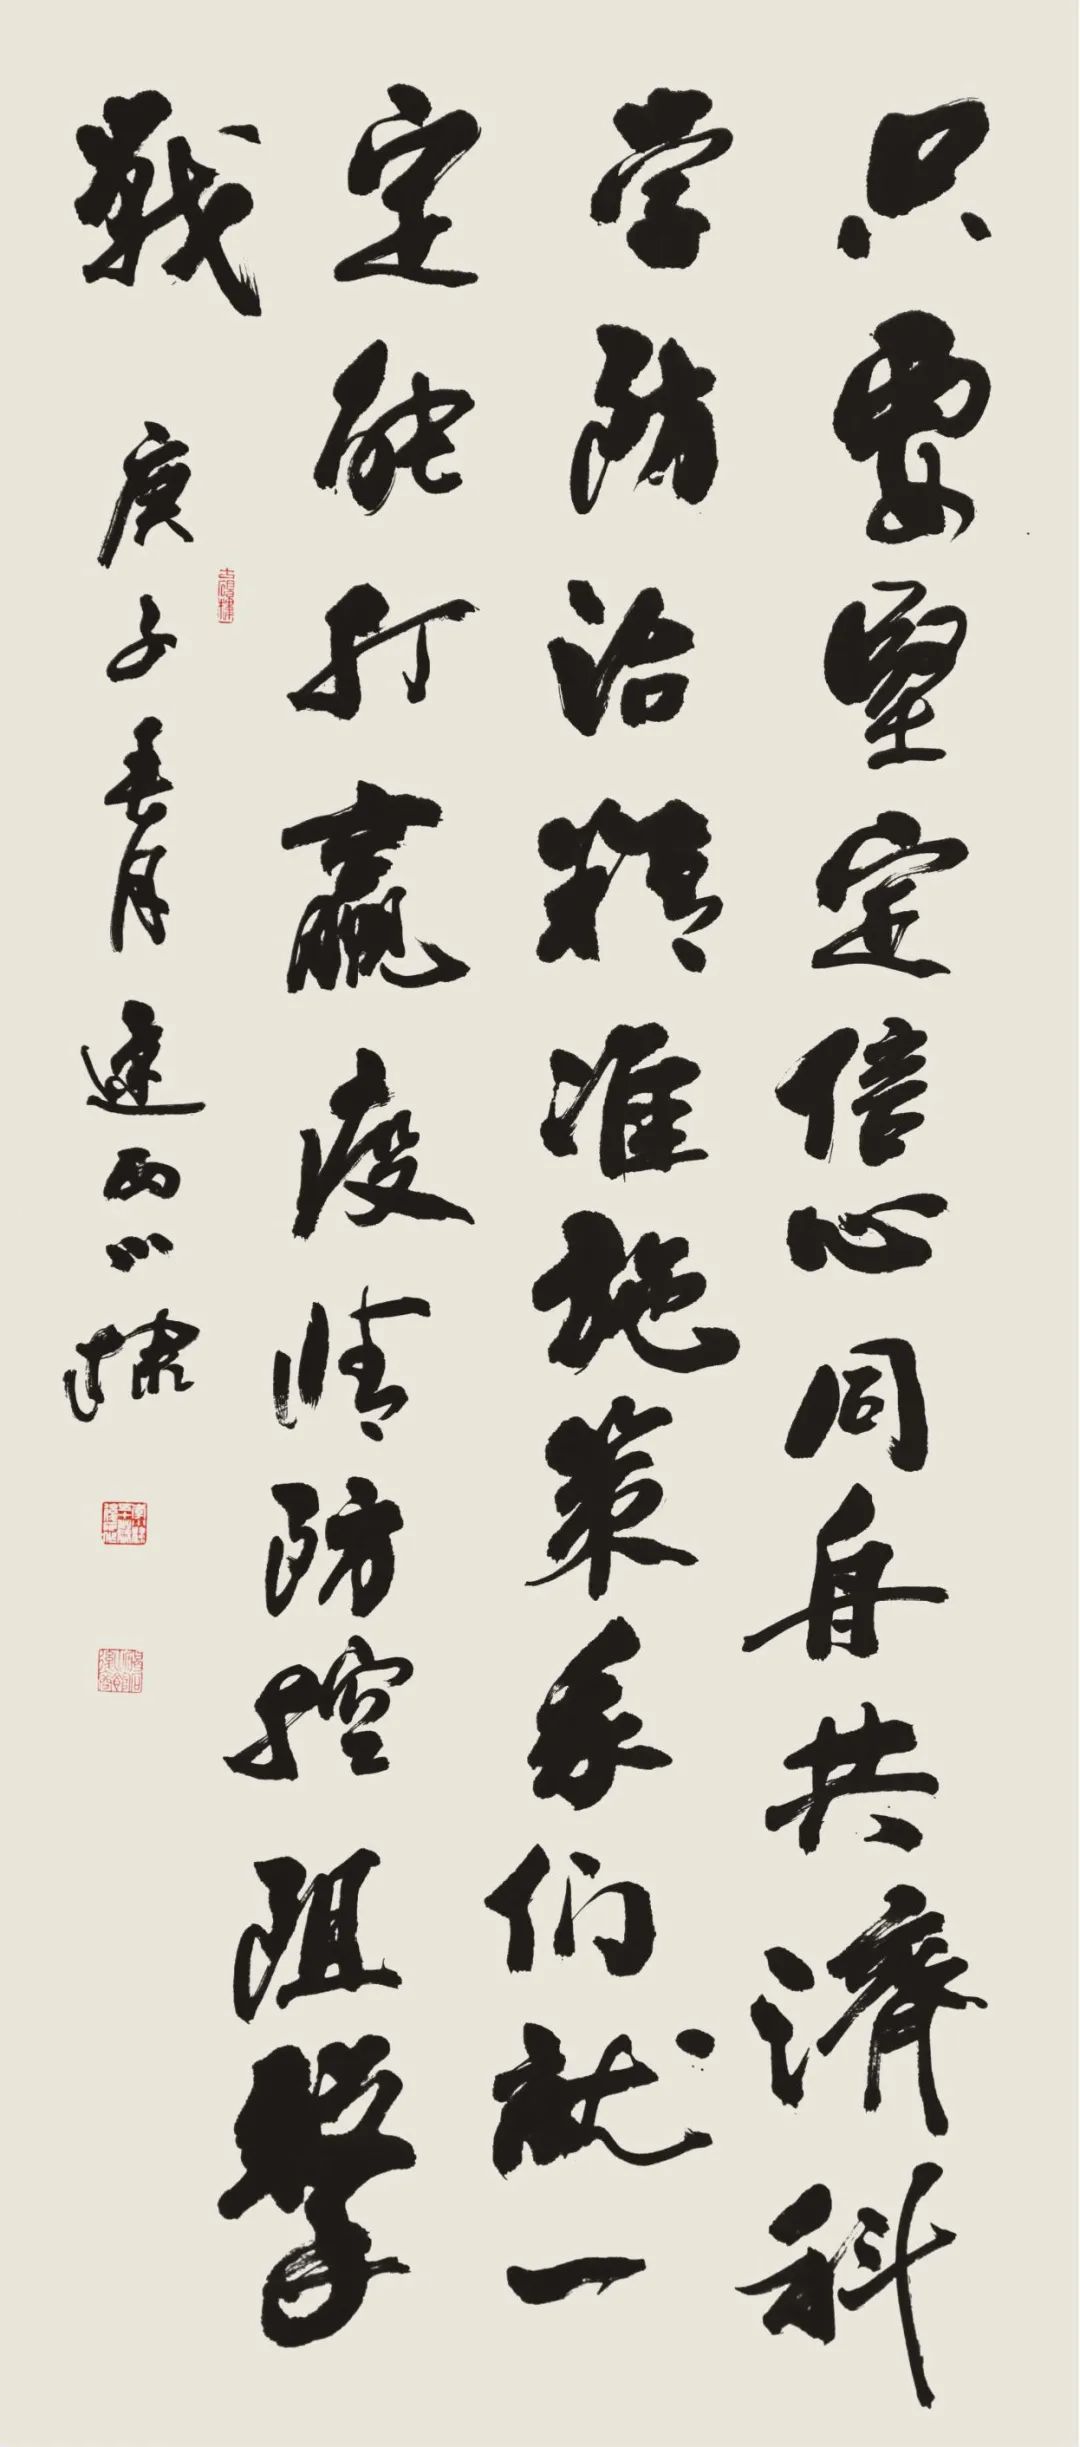 只要坚定信心同舟共济科
学防治精准施策我们就一
定能打赢疫情防控阻击
战
庚子春月建